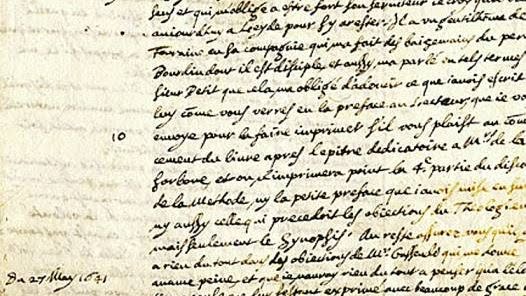 sens et qui m'oblige a estre fort son serviteur le croy qu'il
auiourdhuy a Leyde pour s'y arester. Il y a un gentilhome de
Touraine en sa compagnie qui m'a fait des baizemains du père
Bourdin dont il est disciple et aussy m'a parlé en tels termes
sieur Petit que cela m'a obligé d'adoucir ce que i'auois escrit
luy côme vous verres en la preface au Lecteur que ie vo
10 envoye pour la faire imprimer s'il vous plaist au côm
cement du liure apres l'epitre dedicatoire a Mrs de la
Sorbone, et on n'imprimera point la 4e partie du disco
de la Methode, ny la petite preface que i'auois mise en su
ny aussy celle qui precedoit les obiections du Theologien
mais seulement le Synopsis. Au reste assurez vous qu'il
a rien du tout dans les obiections de Mr Gassendi qui me donne
aucune peine, et que ie n'auray rien du tout a penser qu'a
exprimé avec beaucoup de grace
Du 27 May 1641